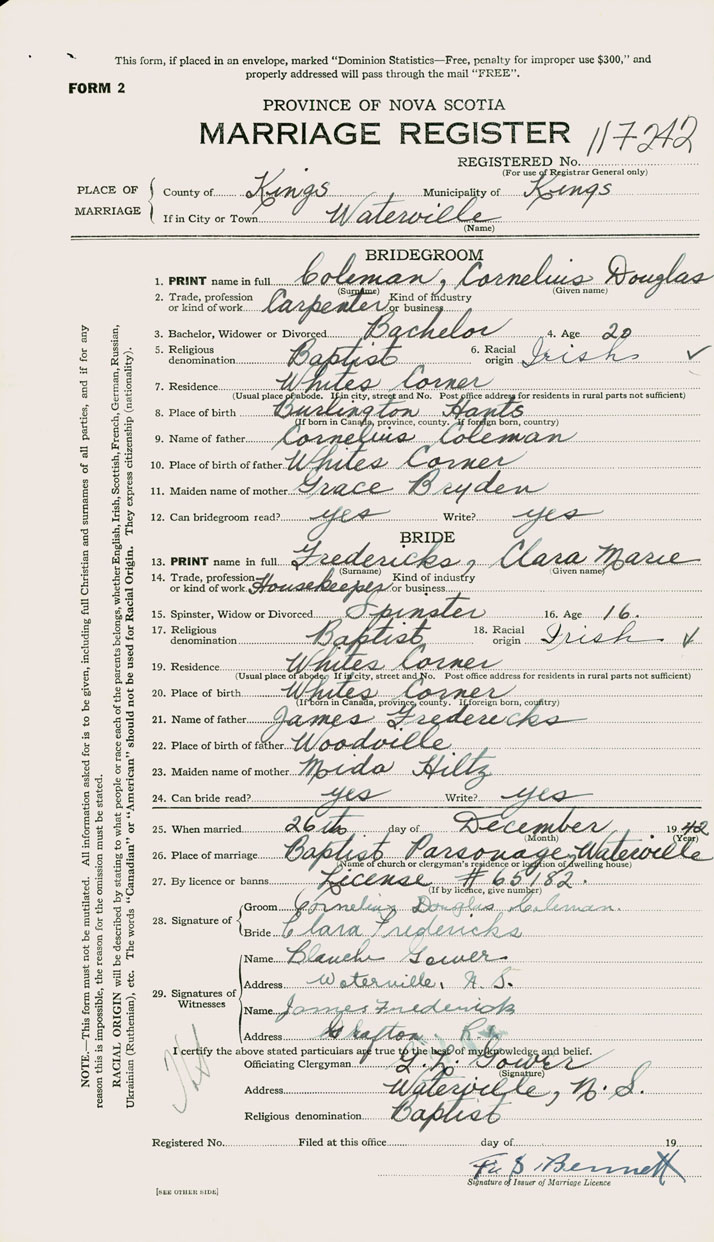 This form, if placed in an envelope, marked "Dominion Statistics—Free, penalty for improper use $300," and
properly addressed will pass through the mail "FREE".
FORM 2
PROVINCE OF NOVA SCOTIA
MARRIAGE REGISTER 117242
REGISTERED No.
(For use of Registrar General only)
PLACE OF MARRIAGE
County of Kings Municipality of Kings
If in City or Town Waterville
(Name)
BRIDEGROOM
1. PRINT name in full Coleman, Cornelius Douglas
(Surname) (Given name)
2. Trade, profession or kind of work Carpenter Kind of industry or business
3. Bachelor, Widower or Divorced Bachelor 4. Age 20
5. Religious denomination Baptist 6. Racial origin Irish ✓
7. Residence Whites Corner
(Usual place of abode. If in city, street and No. Post office address for residents in rural parts not sufficient)
8. Place of birth Burlington Hants
(If born in Canada, province, county. If foreign born, country)
9. Name of father Cornelius Coleman
10. Place of birth of father Whites Corner
11. Maiden name of mother Grace Bryden
12. Can bridegroom read? yes Write? yes
BRIDE
13. PRINT name in full Fredericks, Clara Marie
(Surname) (Given name)
14. Trade, profession or kind of work Housekeeper Kind of industry or business
15. Spinster, Widow or Divorced Spinster 16. Age 16.
17. Religious denomination Baptist 18. Racial origin Irish ✓
19. Residence Whites Corner
(Usual place of abode. If in city, street and No. Post office address for residents in rural parts not sufficient)
20. Place of birth Whites Corner
(If born in Canada, province, county. If foreign born, country)
21. Name of father James Fredericks
22. Place of birth of father Woodville
23. Maiden name of mother Mida Hiltz
24. Can bride read? yes Write? yes
25. When married 26th day of December 1942
(Month) (Year)
26. Place of marriage Baptist Parsonage, Waterville
(Name of church or clergyman's residence or location of dwelling house)
27. By licence or banns License #65182.
(If by licence, give number)
28. Signature of
Groom Cornelius Douglas Coleman.
Bride Clara Fredericks
29. Signatures of Witnesses
Name Blanche Gower
Address Waterville, N.S.
Name James Frederick
Address Grafton
I certify the above stated particulars are true to the best of my knowledge and belief.
Officiating Clergyman Gower
(Signature)
Address Waterville, N.S.
Religious denomination Baptist
Registered No. Filed at this office day of 19
Bennett
Signature of Issuer of Marriage Licence
[SEE OTHER SIDE]
NOTE.—This form must not be mutilated. All information asked for is to be given, including full Christian and surnames of all parties, and if for any
reason this is impossible, the reason for the omission must be stated.
RACIAL ORIGIN will be described by stating to what people or race each of the parents belongs, whether English, Irish, Scottish, French, German, Russian,
Ukrainian (Ruthenian), etc. The words "Canadian" or "American" should not be used for Racial Origin. They express citizenship (nationality).